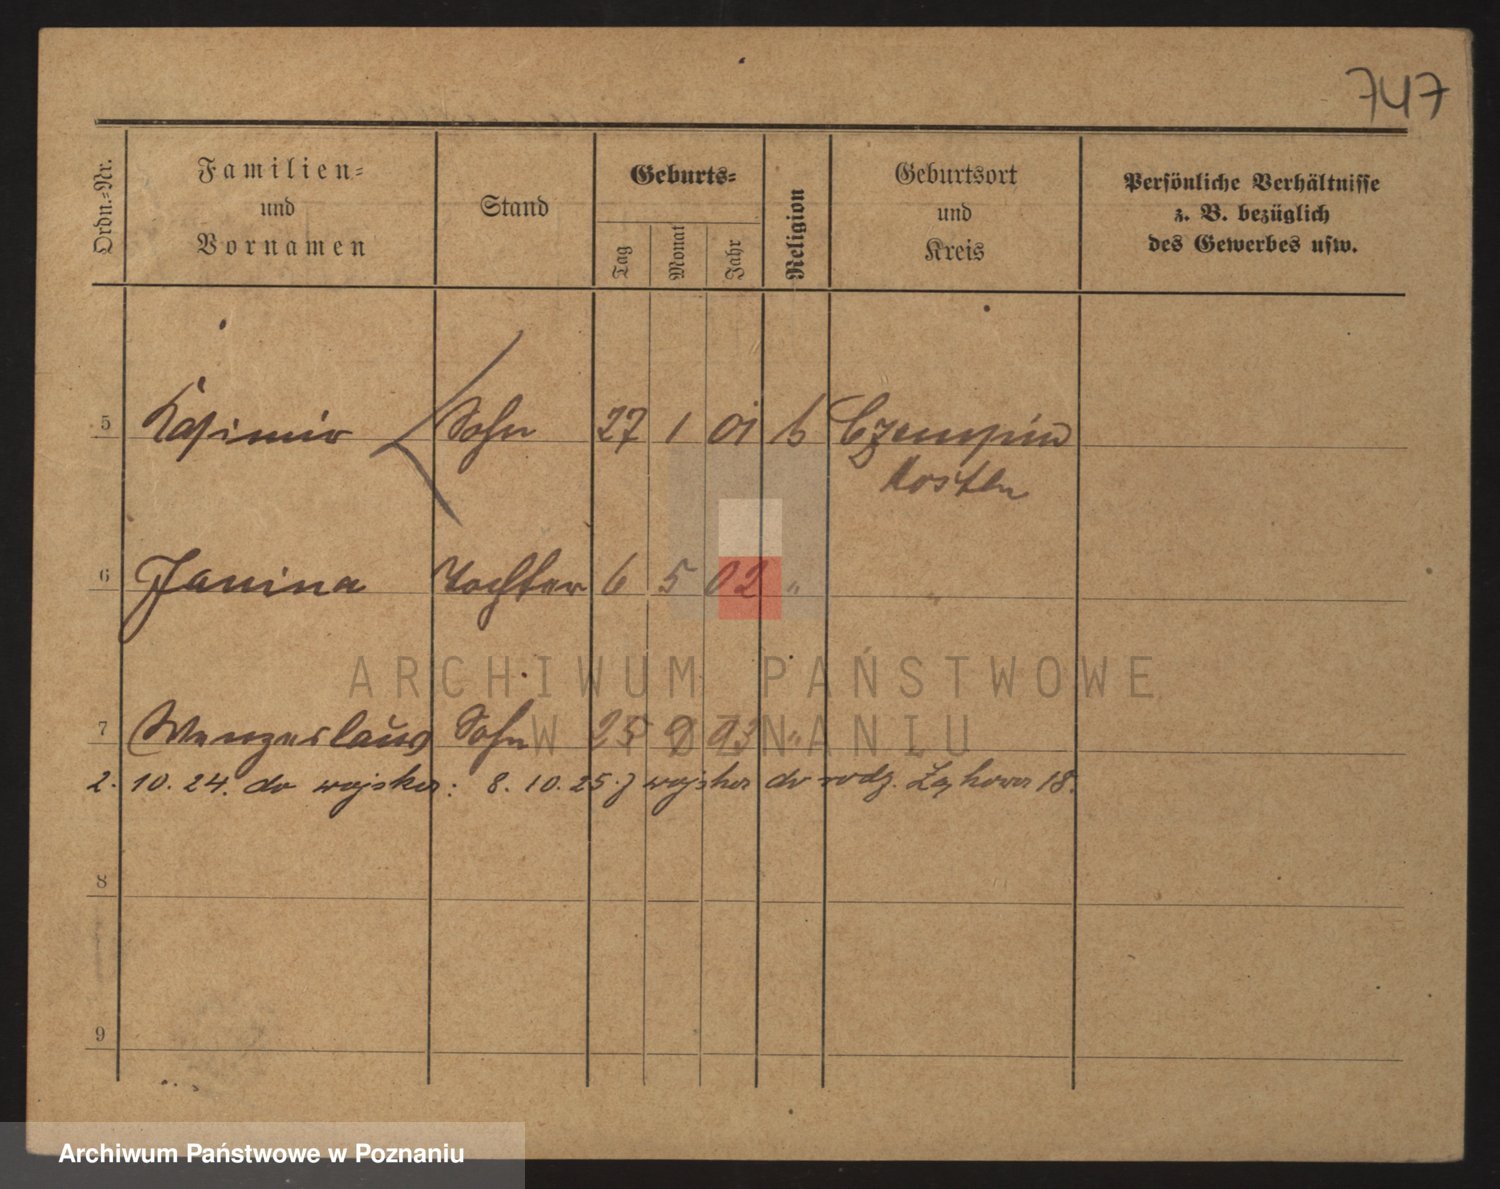 747
Ordn.-Nr.
Familien-
und
Vornamen
Stand
Geburts-
Tag
Monat
Jahr
Religion
Geburtsort
und
Kreis
Persönliche Verhältnisse
z. B. bezüglich
des Gewerbes usw.
5 Kasimir Sohn 27 1 01 k Czempin
Kosten
6 Janina Tochter 6 5 02 " "
ARCHIWUM PAŃSTWOWE
W POZNANIU
7 Wenzeslaus Sohn 25 9 03 "
2. 10. 24. do wojska: 8. 10. 25. z wojska do rodz. Łąkowa 18.
8
9
Archiwum Państwowe w Poznaniu